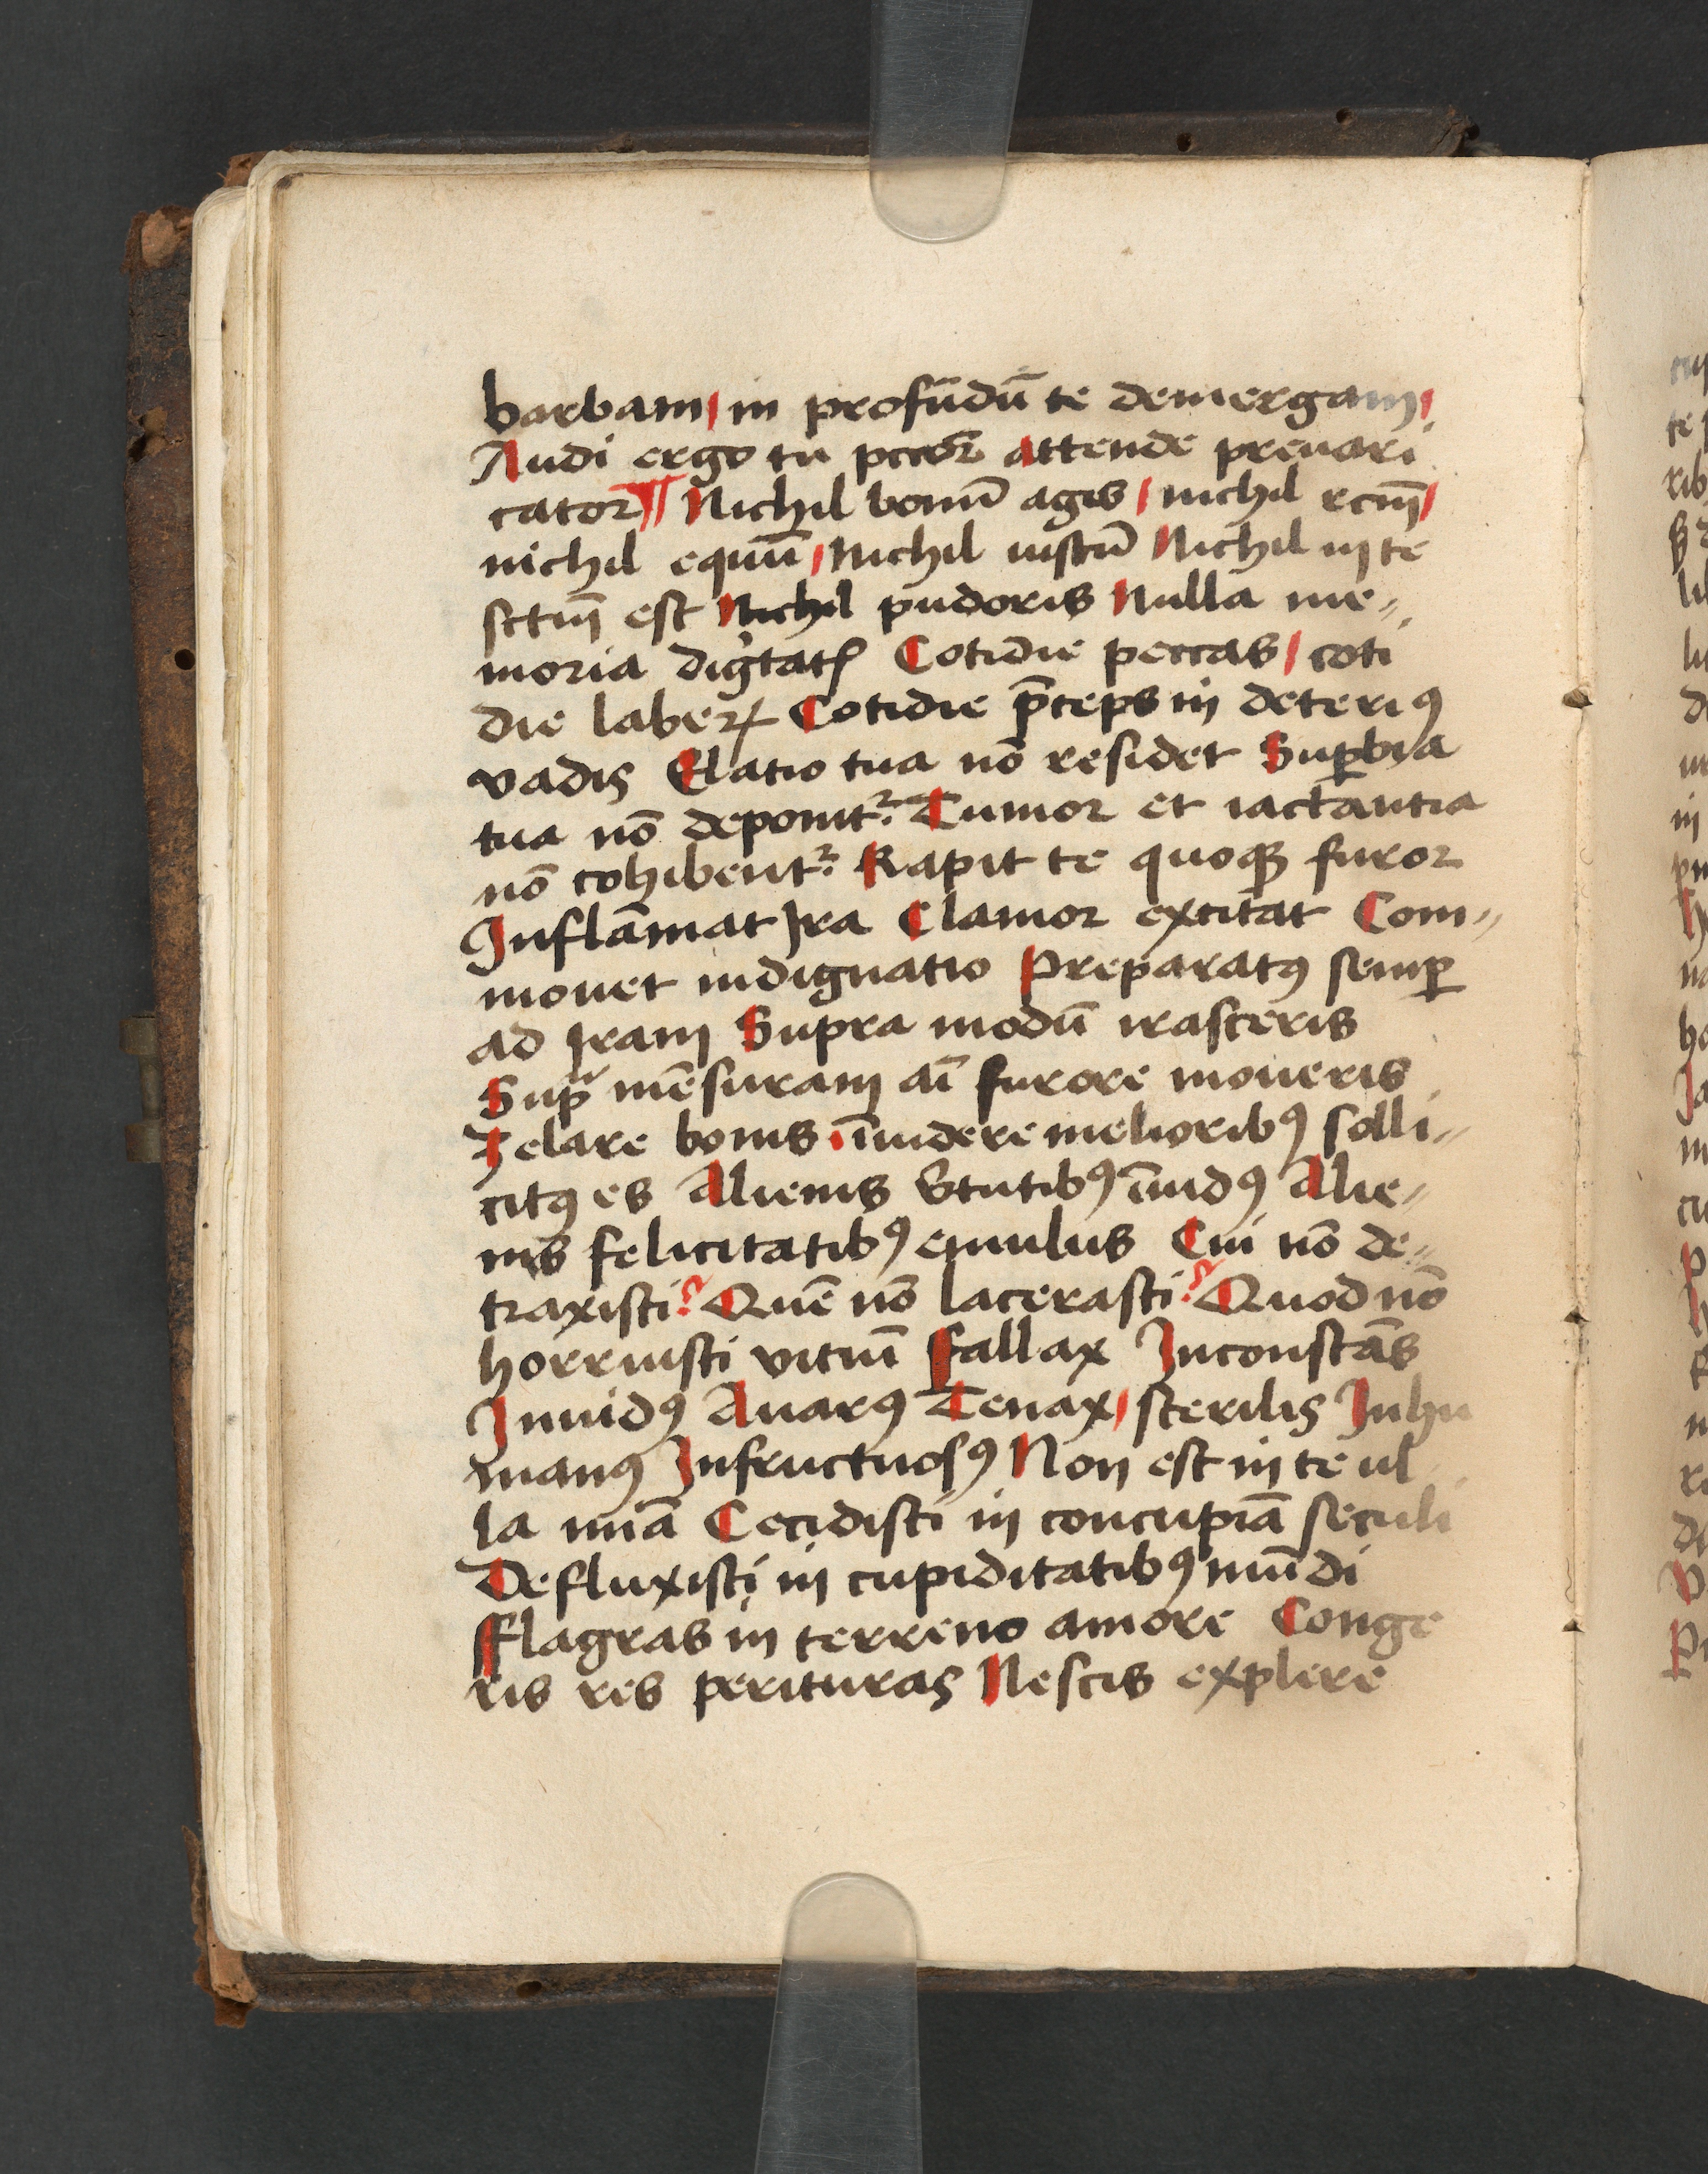 barbam / in profūdū te demergam /
Audi ergo tu pccōr attende preuari
cator ¶ Nichil bonū agis / nichil rcm̄ /
nichil equū / Nichil iustū Nichil in te
sctm̄ est Nichil pudoris Nulla me„
moria digtatꝭ Cotidie peccas / coti
die laberꝭ Cotidie p̄ceps in deteriꝰ
vadis Elatio tua nō residet Suꝑbia
tua nō deponit᷑. Tumor et iactantia
nō cohibent᷑. Rapit te quoqꝫ furor
Inflāmat Ira Clamor excitat Com„
mouet indignatio Preparatꝰ semꝑ
ad Iram Supra modū irasceris
Supᵃ mēsuram aī furore moueris
Zelare bonis īuidere melioribꝰ solli„
citꝰ es Alienis v̄tutibꝰ īuidꝰ Alie„
nis felicitatibꝰ emulus Cui nō de„
traxisti? Quē nō lacerasti? Quod nō
horruisti vitiū Fallax Inconstās
Inuidꝰ Auarꝰ Tenax / sterilis Inhu
manꝰ Infructuosꝰ Non est in te ul
la mīa Cecidisti in concupiā seculi
Defluxisti in cupiditatibꝰ mūdi
Flagras in terreno amore Conge
ris res perituras Nescis explere